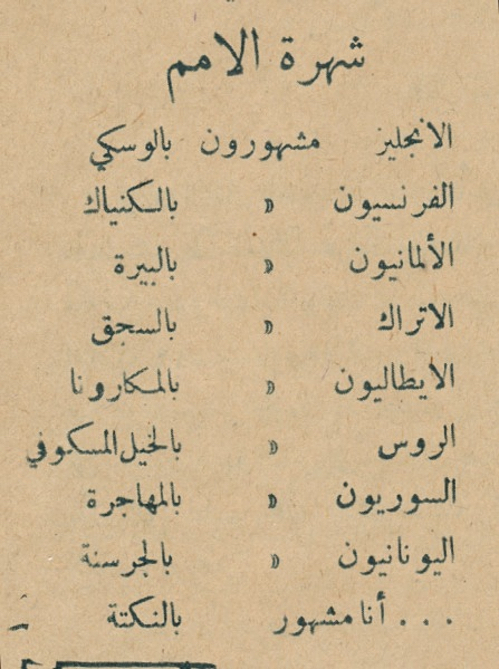 شهرة الامم
الانجليز مشهورون بالوسكي
الفرنسيون » بالكنياك
الألمانيون » بالبيرة
الاتراك » بالسجق
الايطاليون » بالمكارونا
الروس » بالخيل المسكوفي
السوريون » بالمهاجرة
اليونانيون » بالجرسنة
. . . أنا مشهور بالنكتة